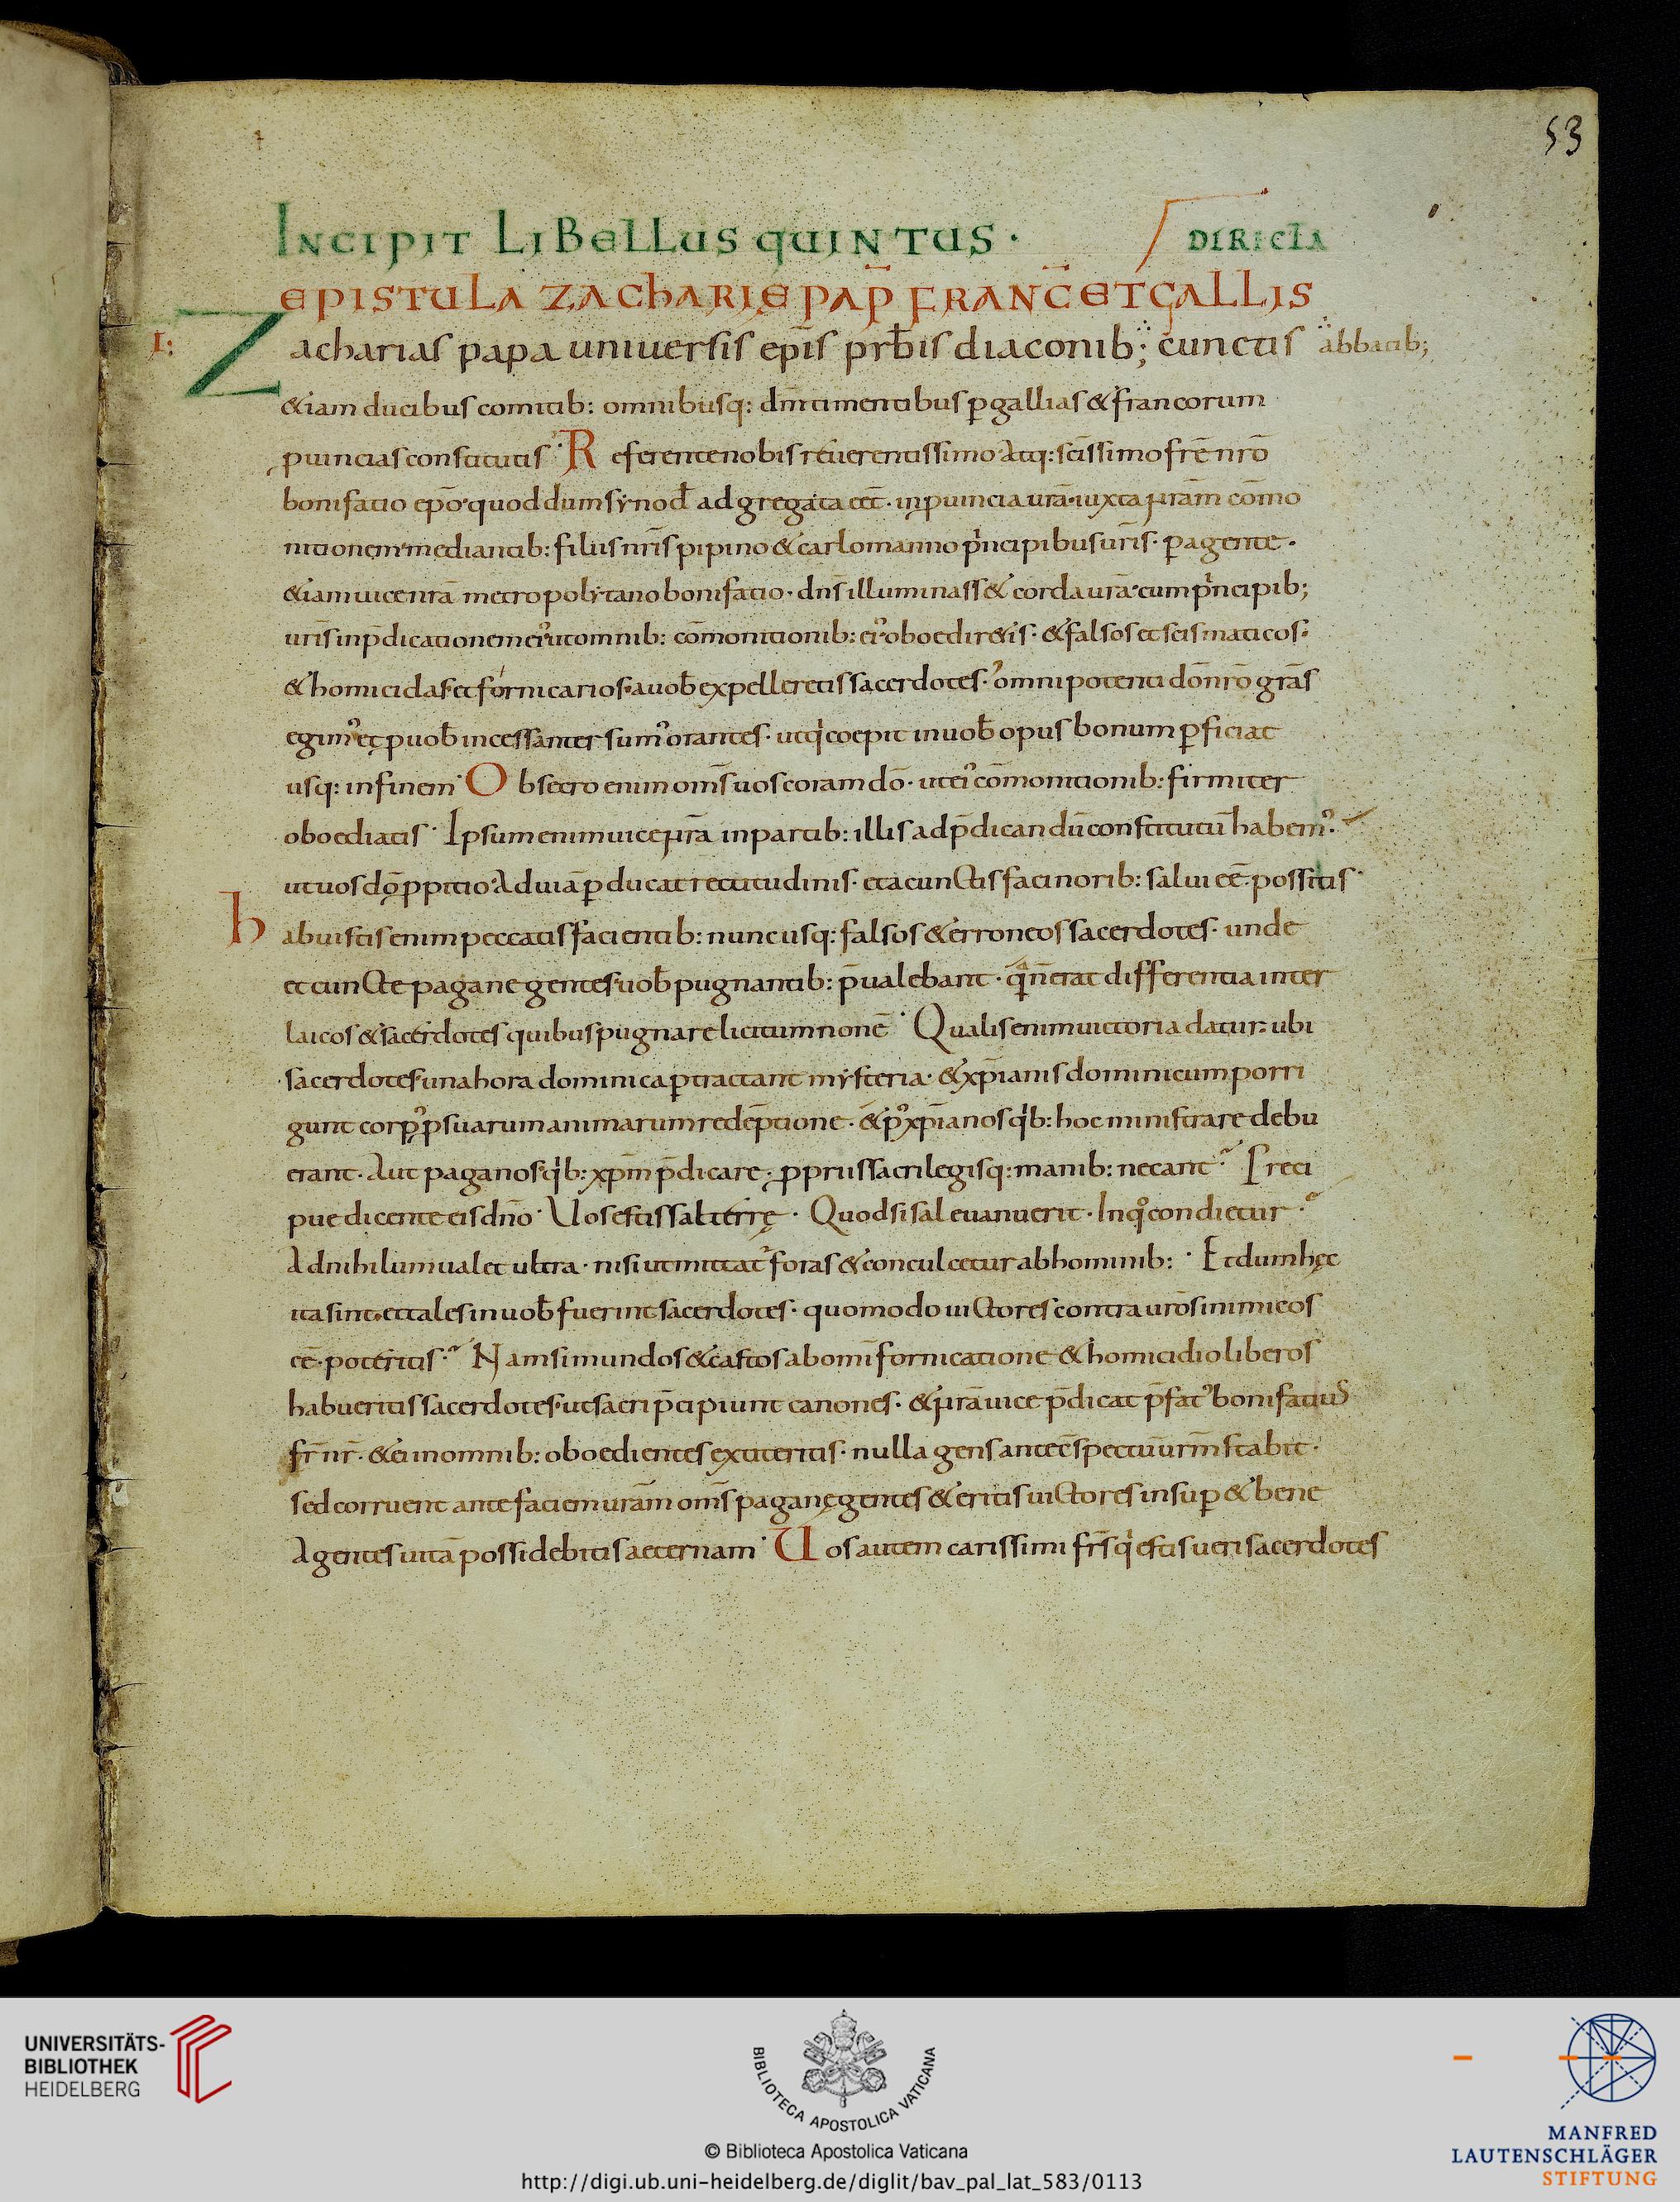 53
INCIPIT LIBELLUS QUINTUS · DIRECTA
EPISTULA ZACHARIĘ PAP̄ FRANC̄ ET GALLIS
I:
Zacharias papa universis ep̄is prb̄is diaconib; cunctis abbatib;
&iam ducibus comitib: omnibusq: dm̄ timentibus ꝑ gallias & francorum
ꝓuincias constitutis · Referente nobis reuerentissimo atq: sc̄issimo fr̄e nr̄o
bonifatio ep̄o · quod dum synod̄ adgregata eēt · in ꝓuincia ur̄a · iuxta nr̄am com̄o
nitionem mediantib: filiis nr̄is pipino & carlomanno pͥncipibus ur̄is · ꝑagente ·
&iam uice nr̄a metropolytano bonifatio · dn̄s illuminass& corda ur̄a cum pͥncipib;
ur̄is in p̄dicationem ei᾽ ut omnib: com̄onitionib: ei᾽ oboedir&is · & falsos et scismaticos ·
& homicidas et fornicarios a uob̄ expelleretis sacerdotes · omnipotenti dō nr̄o gr̄as
egim᾽ et ꝓ uob̄ incessanter sum᾽ orantes · ut qͥ coepit in uob̄ opus bonum ꝑficiat
usq: in finem · Obsecro enim om̄s uos coram dō · ut ei᾽ com̄onitionib: firmiter
oboediatis · Ipsum enim uice nr̄a in partib: illis ad p̄dicandū constitutū habem᾽ ·
ut uos dō ꝓpitio · Ad uiā ꝑducat rectitudinis · et a cunctis facinorib: salui eē possitis ·
habuistis enim peccatis facientib: nunc usq: falsos & erroneos sacerdotes · unde
et cuncte pagane gentes uob̄ pugnantib: p̄ualebant · qͣ n̄ erat differentia inter
laicos & sacerdotes quibus pugnare licitum non ē · Qualis enim uictoria datur · ubi
sacerdotes una hora dominica ꝑtractant mysteria · & xp̄ianis dominicum porri
gunt corp᾽ ꝓ suarum animarum redēptione · & p᾽ xp̄ianos qͥb: hoc ministrare debu
erant · Aut paganos qͥb: xp̄m p̄dicare · ꝓpriis sacrilegisq: manib: necant · Preci
pue dicente eis dn̄o · Uos estis sal terrę · Quod si sal euanuerit · In qͦ condietur ·
Ad nihilum ualet ultra · nisi ut mittat᾽ foras & conculcetur ab hominib: · Et dum hęc
ita sint et tales in uob̄ fuerint sacerdotes · quomodo uictores contra ur̄os inimicos
eē poteritis · Nam si mundos & castos ab om̄i fornicatione & homicidio liberos
habueritis sacerdotes ut sacri p̄cipiunt canones · & nr̄a uice p̄dicat p̄fat᾽ bonifatius
fr̄ nr̄ · & ei in omnib: oboedientes extiteritis · nulla gens ante c̄spectū ur̄m stabit ·
sed corruent ante faciem ur̄am om̄s paganę gentes & eritis uictores insuꝑ & bene
Agentes uitā possidebitis aeternam · Uos autem carissimi fr̄s qͥ estis ueri sacerdotes
UNIVERSITÄTS-
BIBLIOTHEK
HEIDELBERG
BIBLIOTECA APOSTOLICA VATICANA
© Biblioteca Apostolica Vaticana
http://digi.ub.uni-heidelberg.de/diglit/bav_pal_lat_583/0113
MANFRED
LAUTENSCHLÄGER
STIFTUNG